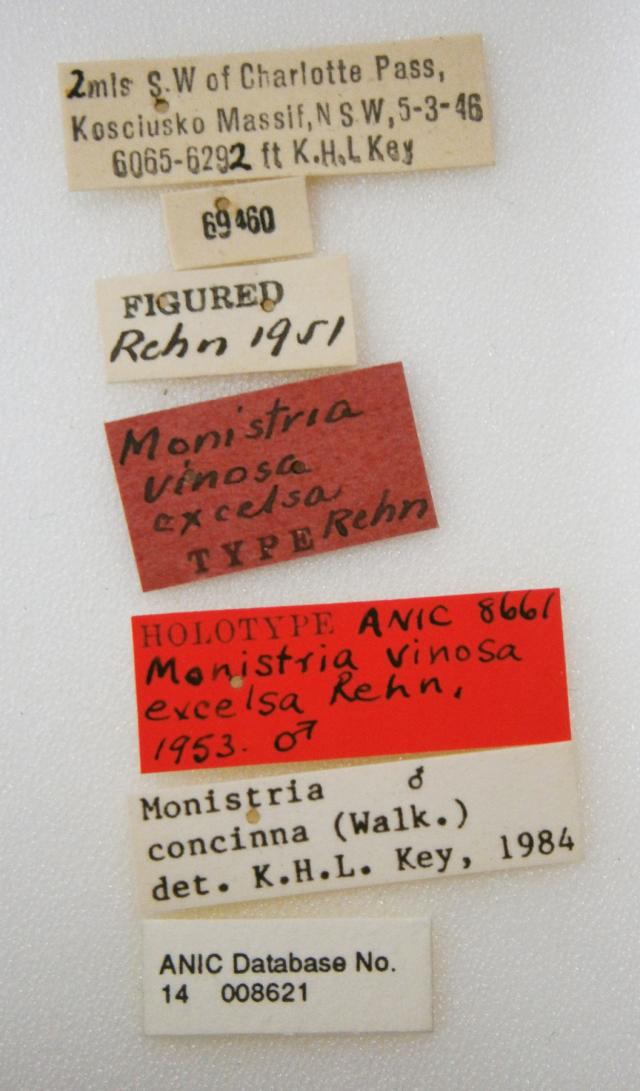 2mls S.W of Charlotte Pass,
Kosciusko Massif, N S W, 5-3-46
6065-6292 ft K.H.L Key
69460
FIGURED
Rehn 1951
Monistria
vinosa
excelsa
TYPE Rehn
HOLOTYPE ANIC 8661
Monistria vinosa
excelsa Rehn,
1953. ♂
Monistria ♂
concinna (Walk.)
det. K.H.L. Key, 1984
ANIC Database No.
14 008621